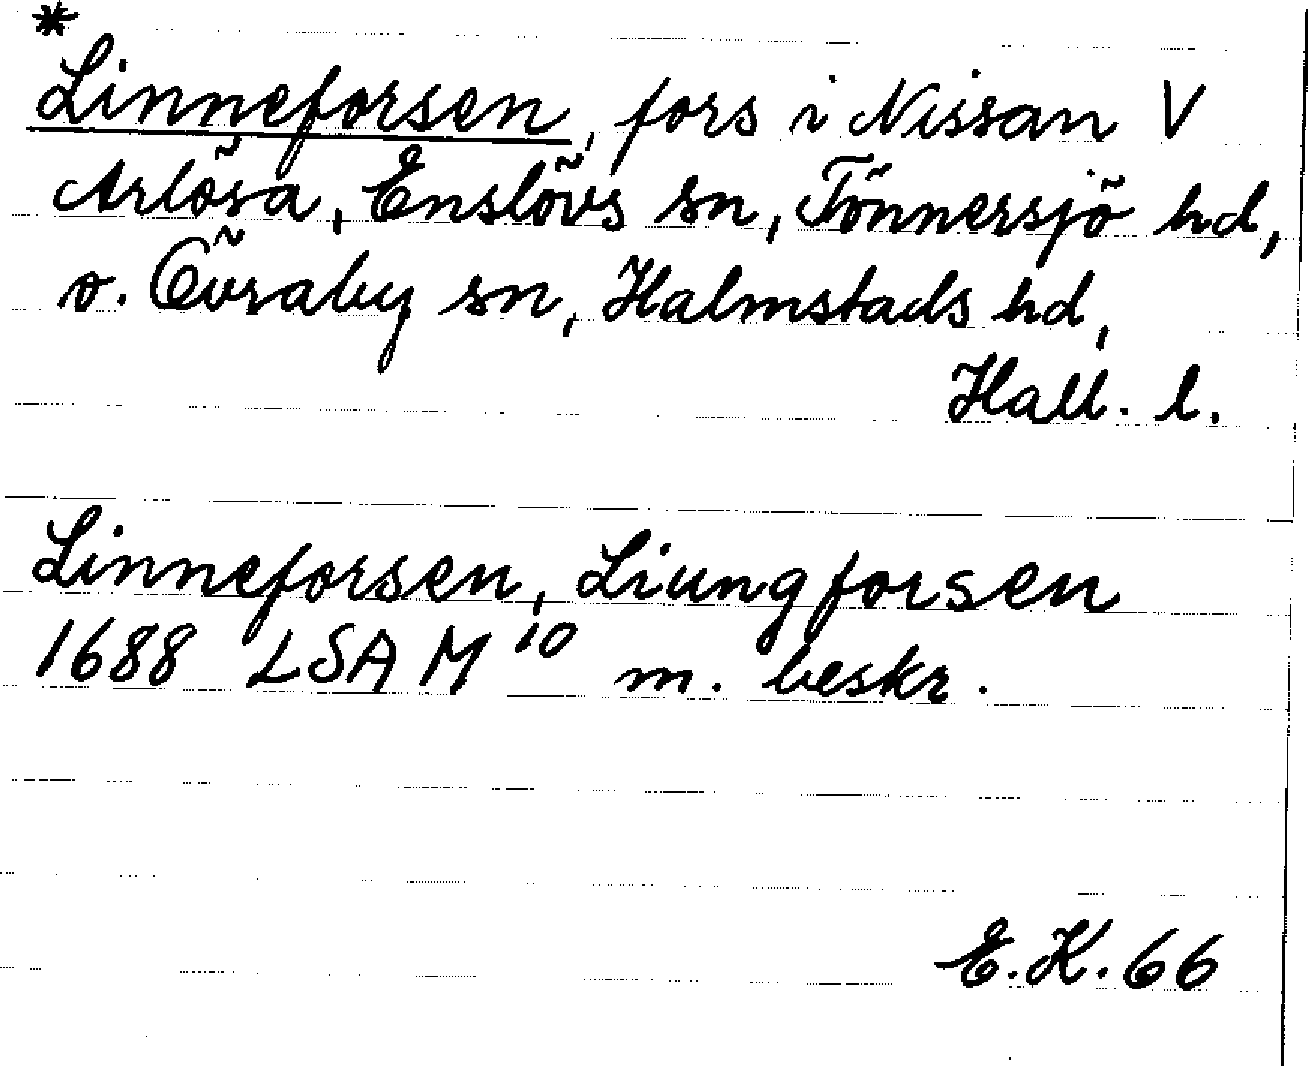 *
Linneforsen, fors i Nissan V
Arlösa, Enslövs sn, Tönnersjö hd,
o. Övraby sn, Halmstads hd,
Hall. l.
Linneforsen, Liungforsen
1688 LSA M 10 m. beskr.
E.K. 66